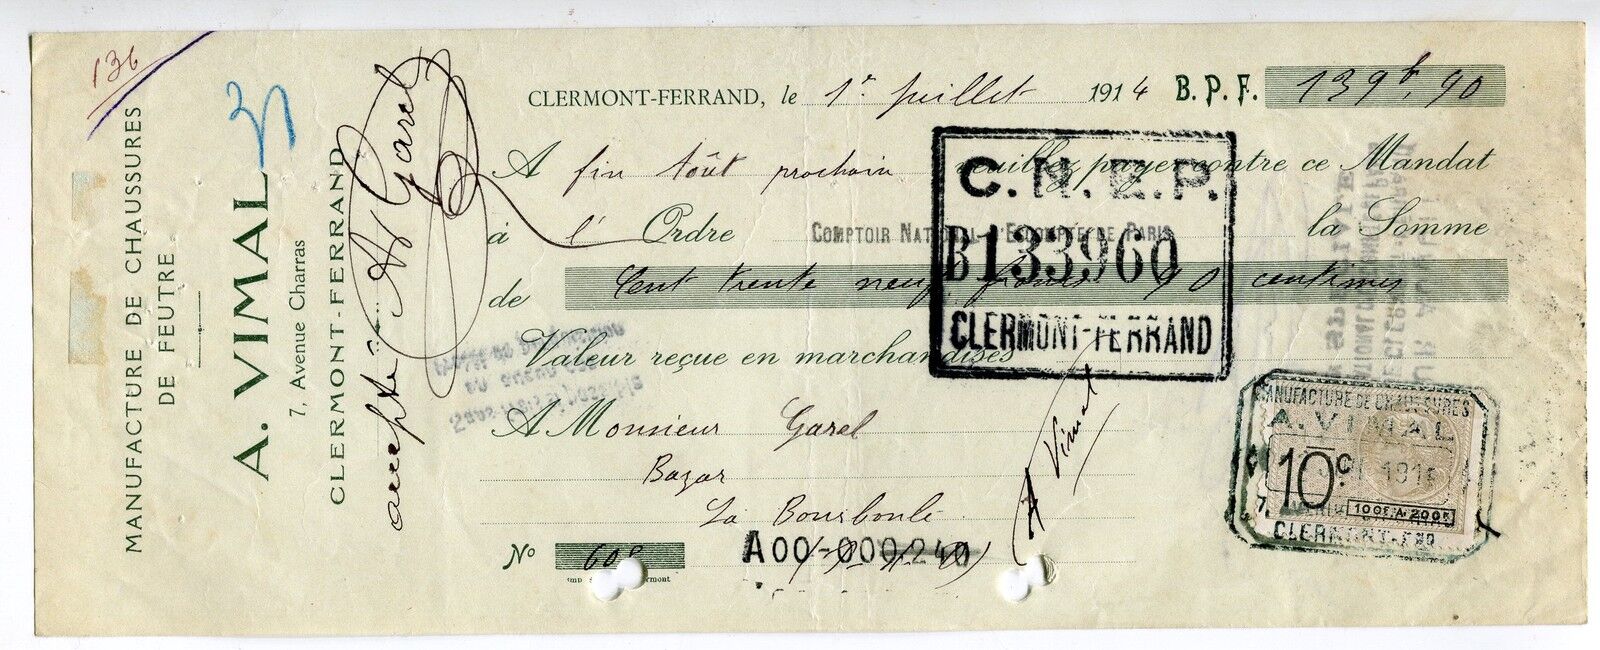 136
MANUFACTURE DE CHAUSSURES
DE FEUTRE
A. VIMAL
7, Avenue Charras
CLERMONT-FERRAND
accepté
A Garel
CLERMONT-FERRAND, le 1er juillet 1914 B. P. F. 139 f. 90
A fin toût prochain veuillez payer contre ce Mandat
à l' Ordre COMPTOIR NATIONAL D'ESCOMPTE DE PARIS la Somme
de Cent trente neuf francs 90 centimes
Valeur reçue en marchandises
C.N.E.P.
B133960
CLERMONT-FERRAND
A Monsieur Garel
Bazar
La Bourboule
A Vimal
No 608
A00-000240
MANUFACTURE DE CHAUSSURES
A. VIMAL
10c
100F. A 200F.
CLERMONT-FRD